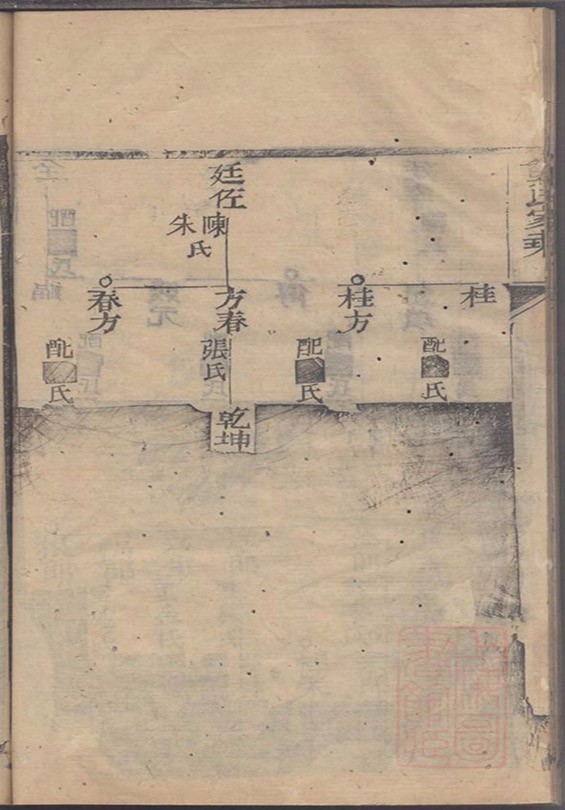 氏家乘
廷佐
陳
朱
氏
桂
桂方
方春
春方
配
氏
配
氏
張氏
配
氏
乾坤